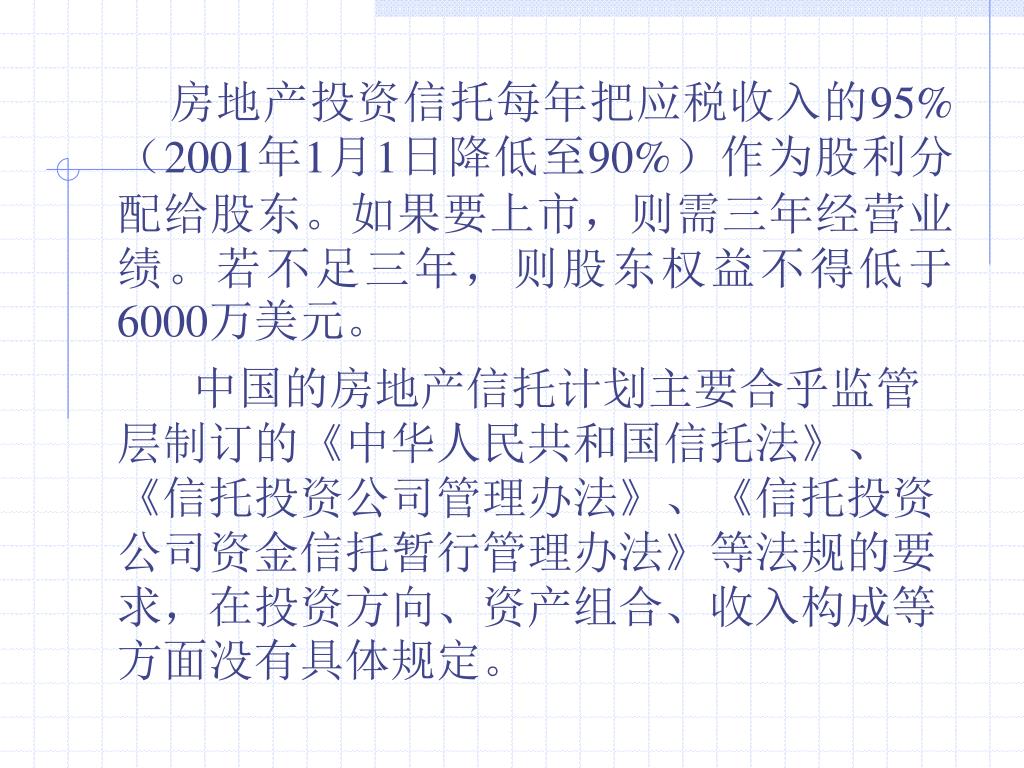 房地产投资信托每年把应税收入的95%
（2001年1月1日降低至90%）作为股利分
配给股东。如果要上市，则需三年经营业
绩。若不足三年，则股东权益不得低于
6000万美元。
中国的房地产信托计划主要合乎监管
层制订的《中华人民共和国信托法》、
《信托投资公司管理办法》、《信托投资
公司资金信托暂行管理办法》等法规的要
求，在投资方向、资产组合、收入构成等
方面没有具体规定。